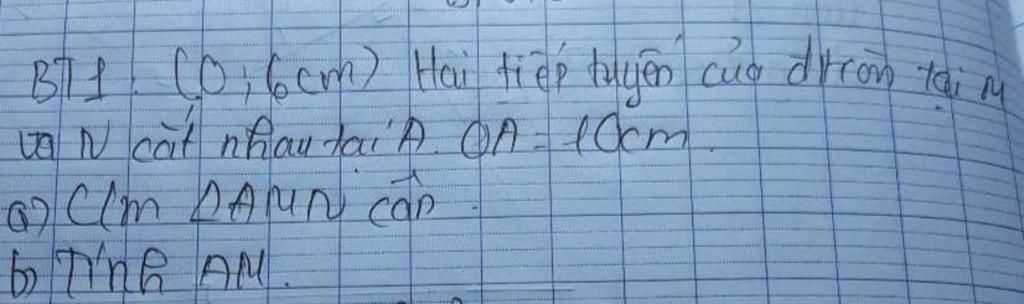 BT1. (O; 6cm) Hai tiếp tuyến của đtròn tại M
và N cắt nhau tại A. OA = 10cm.
a) C/m ΔAMN cân.
b) Tính AM.